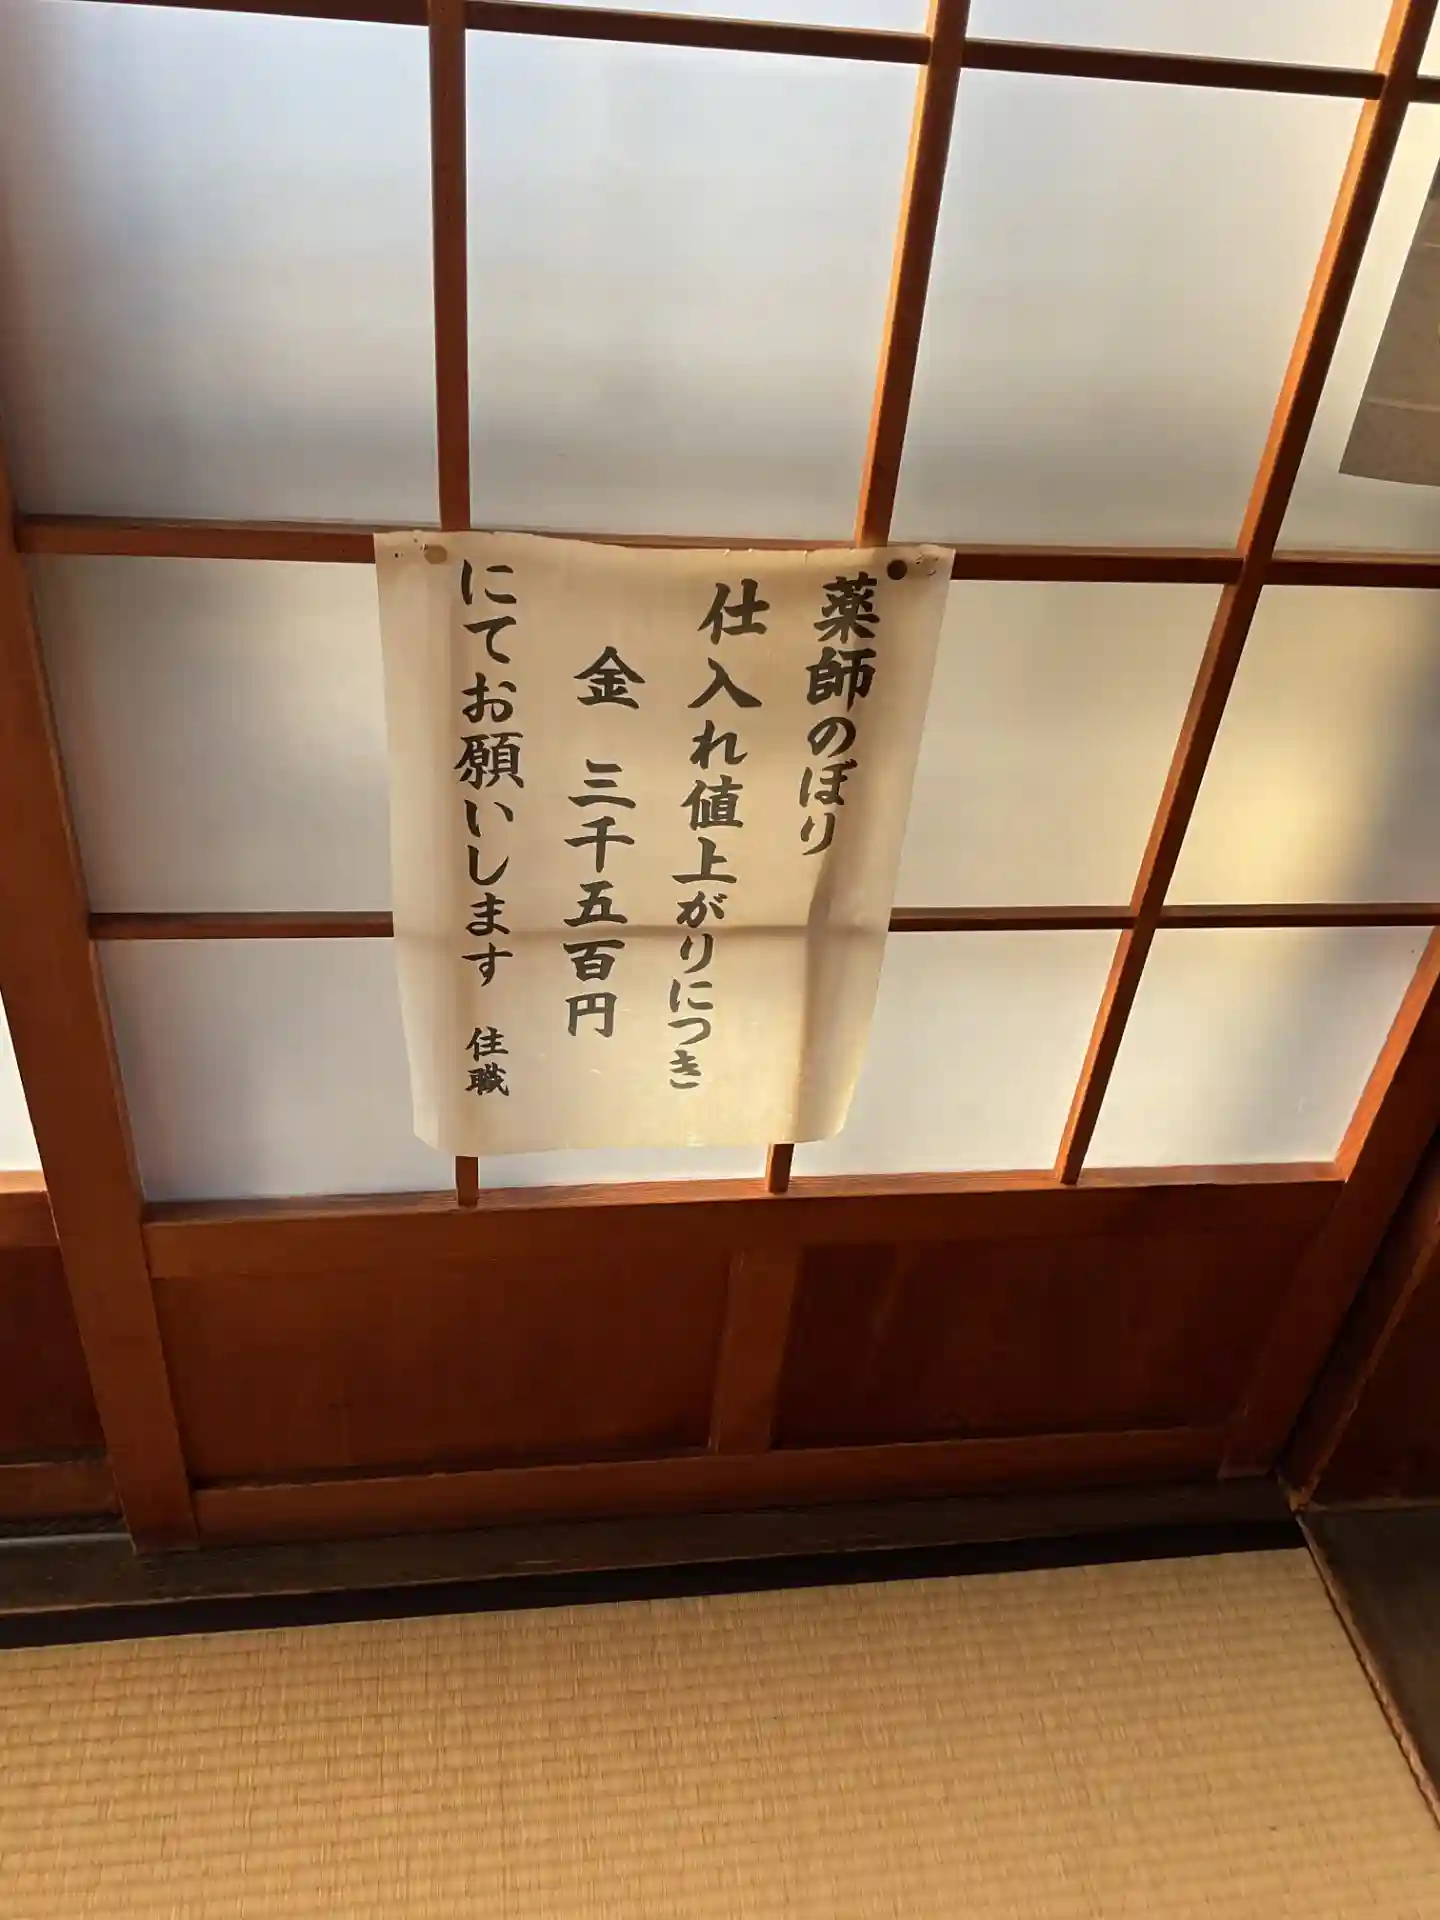 薬師のぼり
仕入れ値上がりにつき
金 三千五百円
にてお願いします 住職